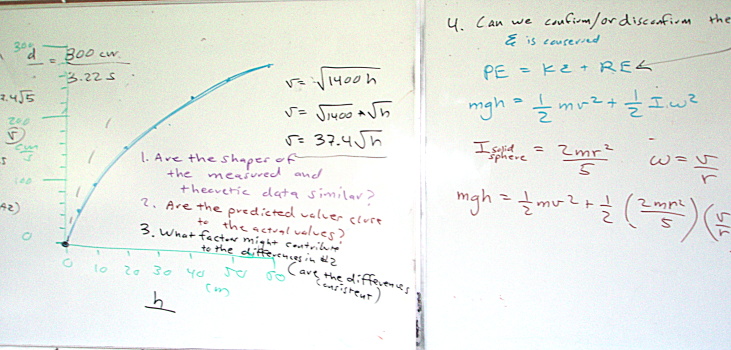 300
d = 300 cm
3.22 s
2.4√5
200
v
cm
s
100
0
0 10 20 30 40 50 60
(cm)
h
v = √1400h
v = √1400 * √h
v = 37.4√h
1. Are the shapes of
the measured and
theoretic data similar?
2. Are the predicted values close
to the actual values?
3. What factors might contribute
to the differences in #2
(are the differences
consistent)
4. Can we confirm/or disconfirm the
E is conserved
PE = KE + RE
mgh = 1/2 mv² + 1/2 I ω²
I solid sphere = 2mr²/5 ω = v/r
mgh = 1/2 mv² + 1/2 (2mr²/5)(v/r